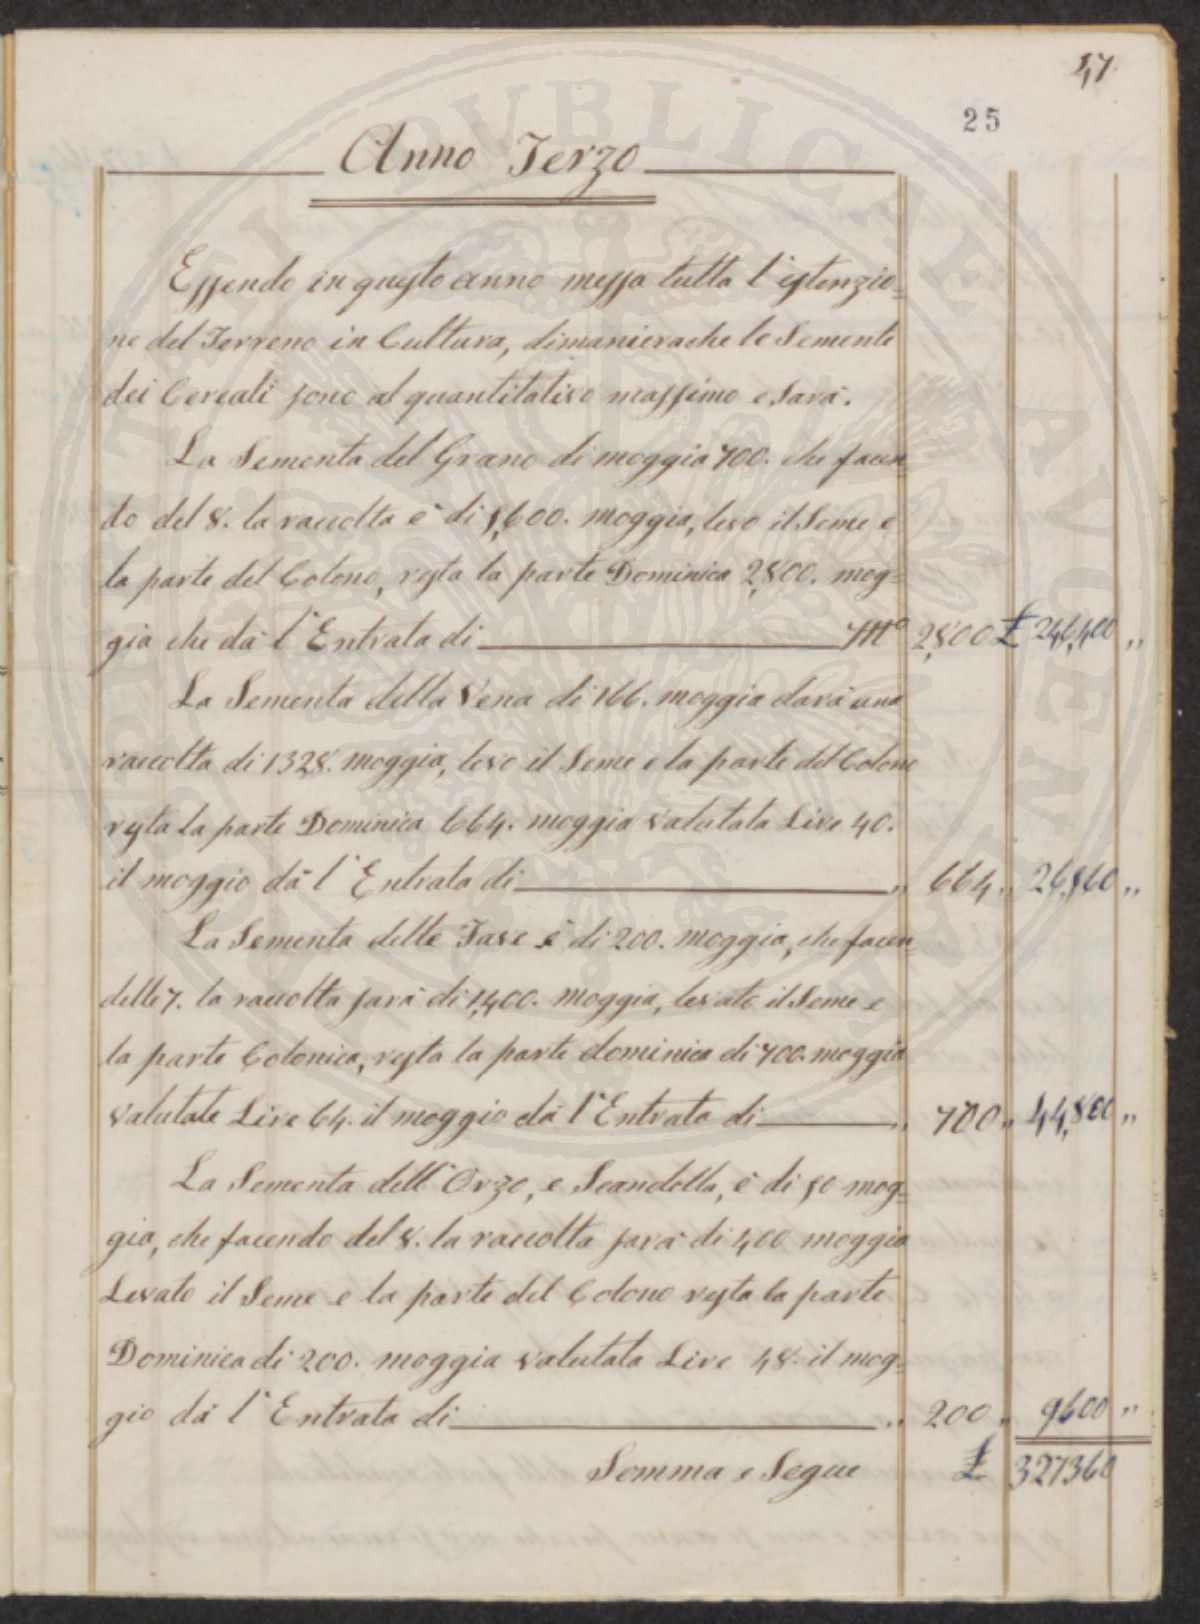 47.
25
Anno Terzo
Essendo in questo anno messa tutta l'estenzio=
ne del Terreno in Cultura, dimanierache le Semente
dei Cereali sono al quantitativo massimo e sarà.
La Sementa del Grano di moggia 700. che facen=
do del 8. la raccolta è di 5,600. moggia, levo il Seme e
la parte del Colono, resta la parte Dominica 2,800. mog=
gia che dà l'Entrata di M° 2,800 £ 246,400 „
La Sementa della Vena di 166. moggia darà una
raccolta di 1328. moggia, levo il Seme e la parte del Colono
resta la parte Dominica 664. moggia valutata Lire 40.
il moggio dà l'Entrata di „ 664 „ 26,560 „
La Sementa delle Fave è di 200. moggia, che facen=
delle 7. la raccolta sarà di 1,400. moggia, levato il Seme e
la parte Colonica, resta la parte dominica di 700. moggia
valutate Lire 64. il moggio dà l'Entrata di „ 700 „ 44,800 „
La Sementa dell'Orzo, e Scandella, è di 50 mog=
gia, che facendo del 8. la raccolta sarà di 400 moggia
Levato il Seme e la parte del Colono resta la parte
Dominica di 200. moggia valutata Lire 48. il mog=
gio dà l'Entrata di „ 200 „ 9600 „
Somma e Segue £ 327360